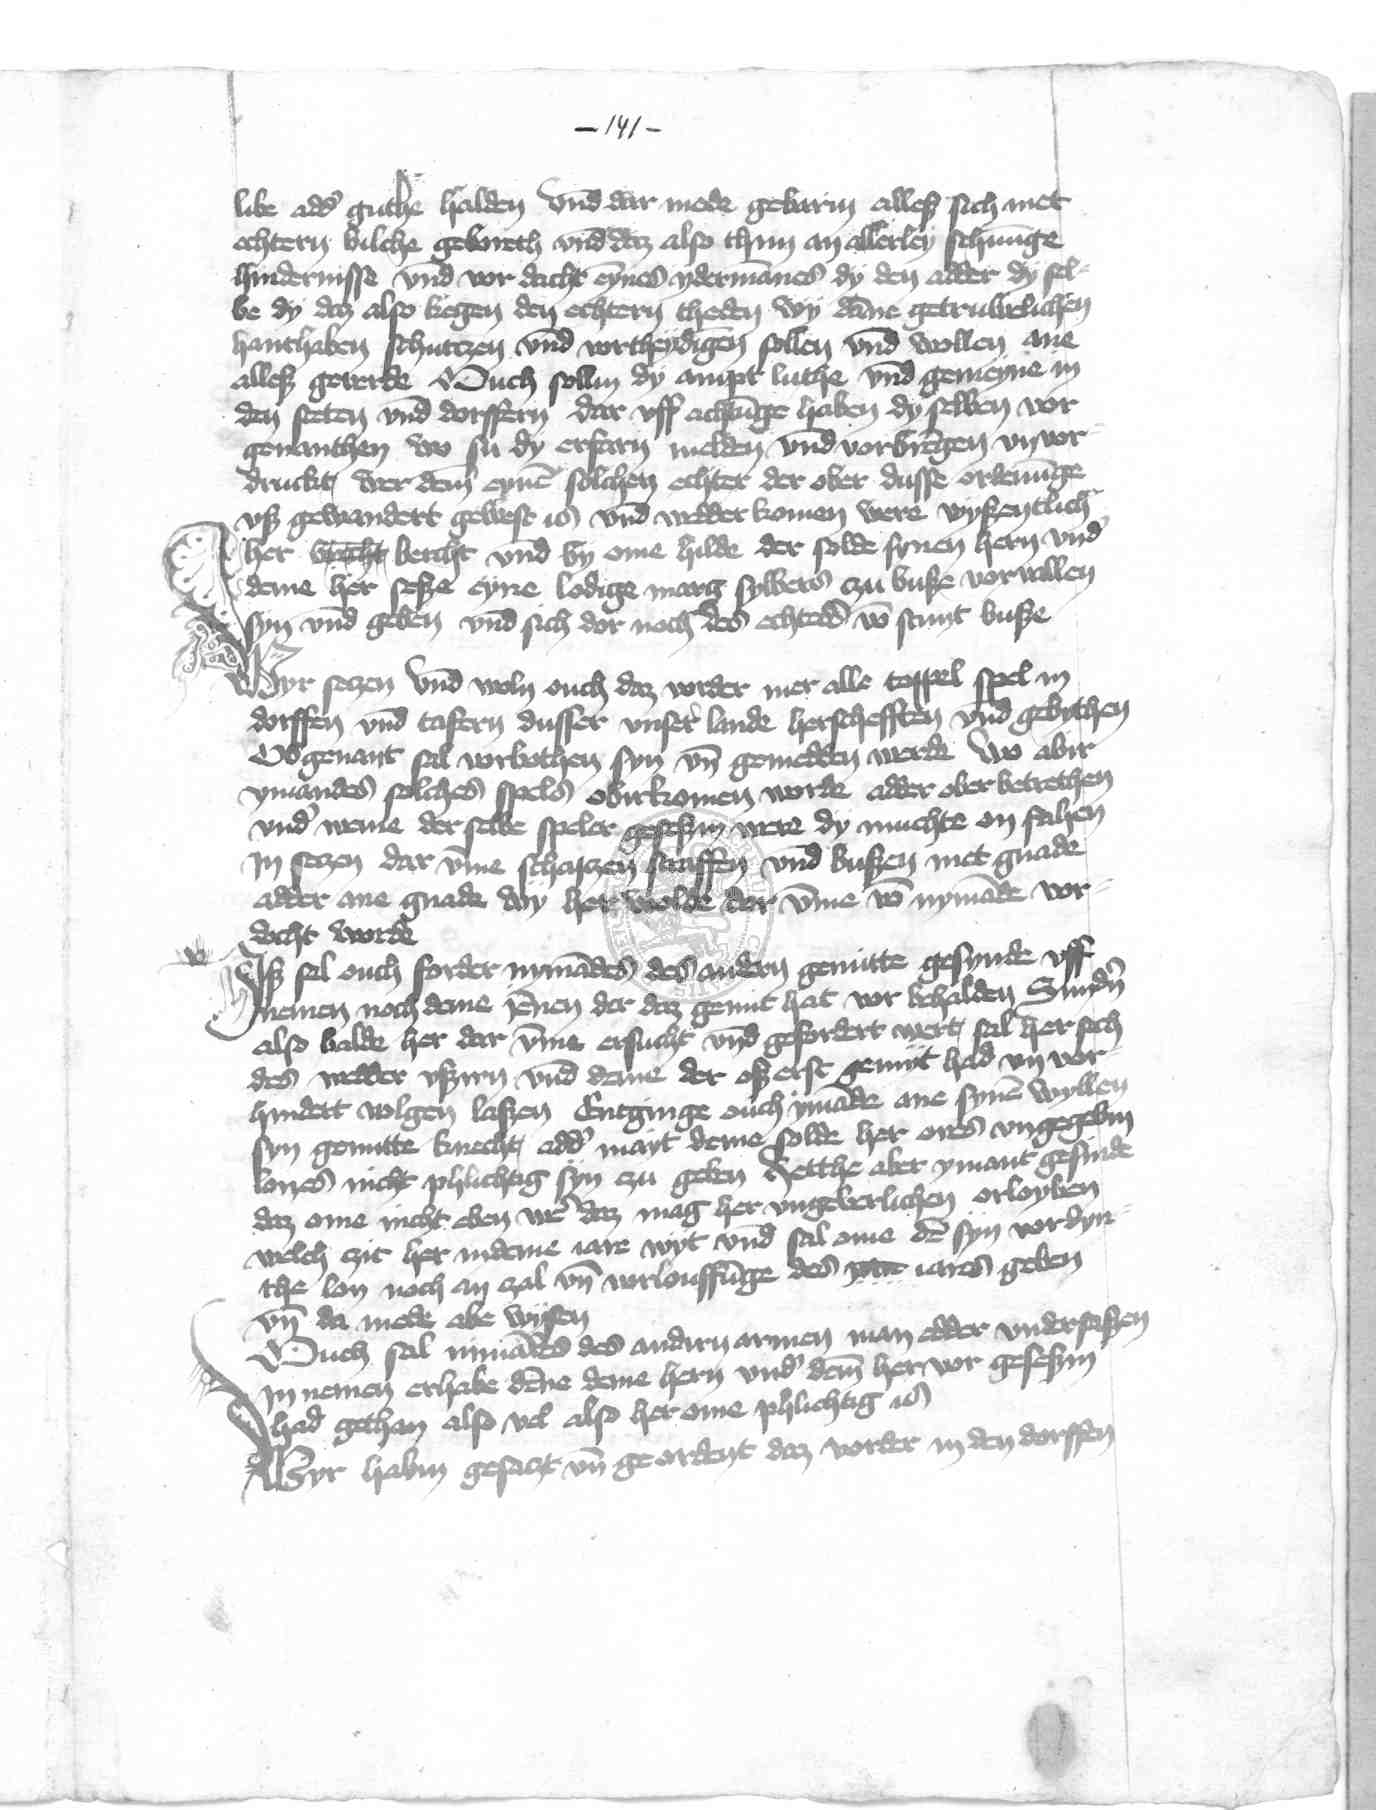 - 141 -
libe add' guthe halden vnd dar mede gebarin alleß sich met
echtern bilche geboreth vnd daz also thun an allerley schunge
hindernisse vnd vor dacht eynes ydermanes dy den adder dy sel-
be dy daz also kegen den echtern theden wy dāne getruwelichen
hanthaben schutczen vnd vorteydigen sollen vnd wollen ane
alleß geuerde Ouch sollin dy ampt luthe vnd gemeyne in
den steten vnd dorffern dar vff achtūge haben dy selben vor
genanthen wo sii dy erfarn melden vnd vorbrēgen vn vor-
druckt wer dem eynē solchen echter der ober dusse ordenūge
vß gewandert gewest is vnd wedder komen were wyßentlich
her bercht vnd by ome hilde der solde synen hern vnd'
deme her seße eyne lodige marg sylbers czu buße vorvallen
syn vnd geben vnd sich dor noch des echters vō stunt buße
Wyr setzen vnd woln ouch daz vorder mer alle toppel spel in
dorffen vnd tafern dusser vnser lande herschefften vnd gebythen
Obgenant sal vorbothen syn vn̄ gemedden werde Wo abir
ymandes solches spels obirkomen worde adder ober betrethen
vnd' weme der selbe speler geseßin were dy muchte on fahen
in setzen dar vme schatzen straffen vnd bußen met gnade
adder ane gnade wy her wolde dar vme vō nymāde vor-
docht worde
Iß sal ouch forder nymādes des andern gemitte gesynde vff
nemen noch deme jenen der daz gemit hat vor behalden Sund'n
also balde her dar vme ersucht vnd gefordert wert sal her sich
des wedder vßirn vnd deme der oß erst gemyt had vn vor-
hindert volgen laßen Entginge ouch ymāde ane synē wyllen
syn gemitte knecht add' mayt deme solde her ores vngegebin
lones nicht phlichtig syn zu geben Hetthe aber ymant gesinde
daz ome nicht eben we' daz mag her vngeuerlichen orloyben
welch czit her in deme iare wyt vnd sal ome de syn vordyn-
the lon noch an czal vn̄ vorlouffūge des iares geben
vn̄ da mede abe wysen
Ouch sal nimādes des andirn armen man edder vndersaßen
in nemen er habe dēne deme hern vnd' dem her vor geseßin
had gethan also vel also her ome phlichtig is
Wyr habin gesaczt vn̄ geordent daz vorder in den dorffen